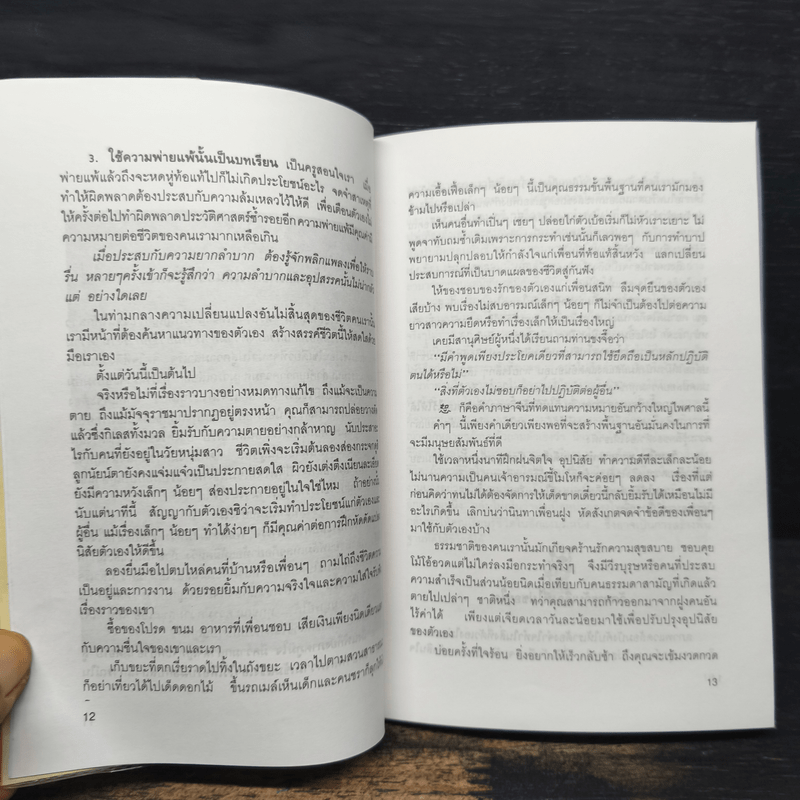 3. ใช้ความพ่ายแพ้นั้นเป็นบทเรียน เป็นครูสอนใจเรา เมื่อ
พ่ายแพ้แล้วถึงจะหดหู่ท้อแท้ไปก็ไม่เกิดประโยชน์อะไร จดจำสาเหตุที่
ทำให้ผิดพลาดต้องประสบกับความล้มเหลวไว้ให้ดี เพื่อเตือนตัวเองไม่
ให้ครั้งต่อไปทำผิดพลาดประวัติศาสตร์ซ้ำรอยอีก ความพ่ายแพ้มีคุณค่ามี
ความหมายต่อชีวิตของคนเรามากเหลือเกิน
เมื่อประสบกับความยากลำบาก ต้องรู้จักพลิกแพลงเพื่อให้ราบ
รื่น หลายๆครั้งเข้าก็จะรู้สึกว่า ความลำบากและอุปสรรคนั้นไม่น่ากลัว
แต่ อย่างใดเลย
ในท่ามกลางความเปลี่ยนแปลงอันไม่สิ้นสุดของชีวิตคนเรานั้น
เรามีหน้าที่ต้องค้นหาแนวทางของตัวเอง สร้างสรรค์ชีวิตนี้ให้สดใสด้วย
มือเราเอง
ตั้งแต่วันนี้เป็นต้นไป
จริงหรือไม่ที่เรื่องราวบางอย่างหมดทางแก้ไข ถึงแม้จะเป็นความ
ตาย ถึงแม้มัจจุราชมาปรากฏอยู่ตรงหน้า คุณก็สามารถปล่อยวางได้
แล้วซึ่งกิเลสทั้งมวล ยิ้มรับกับความตายอย่างกล้าหาญ นับประสา
ไรกับคนที่ยังอยู่ในวัยหนุ่มสาว ชีวิตเพิ่งจะเริ่มต้นลองส่องกระจกดู
ลูกนัยน์ตายังคงแจ่มแจ๋วเป็นประกายสดใส ผิวยังเต่งตึงเนียนละเอียด
ยังมีความหวังเล็กๆ น้อยๆ ส่องประกายอยู่ในใจใช่ไหม ถ้าอย่างนั้น
นับแต่นาทีนี้ สัญญากับตัวเองซิว่าจะเริ่มทำประโยชน์แก่ตัวเองและ
ผู้อื่น แม้เรื่องเล็กๆ น้อยๆ ทำได้ง่ายๆ ก็มีคุณค่าต่อการฝึกหัดดัดแปลง
นิสัยตัวเองให้ดีขึ้น
ลองยื่นมือไปตบไหล่คนที่บ้านหรือเพื่อนๆ ถามไถ่ถึงชีวิตความ
เป็นอยู่และการงาน ด้วยรอยยิ้มกับความจริงใจและความใส่ใจรับฟัง
เรื่องราวของเขา
ซื้อของโปรด ขนม อาหารที่เพื่อนชอบ เสียเงินเพียงนิดเดียวแลก
กับความชื่นใจของเขาและเรา
เก็บขยะที่ตกเรี่ยราดไปทิ้งในถังขยะ เวลาไปตามสวนสาธารณะ
ก็อย่าเที่ยวได้ไปเด็ดดอกไม้ ขึ้นรถเมล์เห็นเด็กและคนชราก็ลุกให้นั่ง
12
ความเอื้อเฟื้อเล็กๆ น้อยๆ นี้เป็นคุณธรรมขั้นพื้นฐานที่คนเรามักมอง
ข้ามไปหรือเปล่า
เห็นคนอื่นทำเปิ่นๆ เชยๆ ปล่อยไก่ตัวเบ้อเริ่มก็ไม่หัวเราะเยาะ ไม่
พูดจาทับถมซ้ำเติมเพราะการกระทำเช่นนั้นก็เลวพอๆ กับการทำบาป
พยายามปลุกปลอบให้กำลังใจแก่เพื่อนที่ท้อแท้สิ้นหวัง แลกเปลี่ยน
ประสบการณ์ที่เป็นบาดแผลของชีวิตสู่กันฟัง
ให้ของชอบของรักของตัวเองแก่เพื่อนสนิท ลืมจุดยืนของตัวเอง
เสียบ้าง พบเรื่องไม่สบอารมณ์เล็กๆ น้อยๆ ก็ไม่จำเป็นต้องไปต่อความ
ยาวสาวความยืดหรือทำเรื่องเล็กให้เป็นเรื่องใหญ่
เคยมีสานุศิษย์ผู้หนึ่งได้เรียนถามท่านขงจื๊อว่า
"มีคำพูดเพียงประโยคเดียวที่สามารถใช้ยึดถือเป็นหลักปฏิบัติ
ตนได้หรือไม่"
"สิ่งที่ตัวเองไม่ชอบก็อย่าไปปฏิบัติต่อผู้อื่น"
ก็คือคำภาษาจีนที่ทดแทนความหมายอันกว้างใหญ่ไพศาลนี้
คำๆ นี้เพียงคำเดียวเพียงพอที่จะสร้างพื้นฐานอันมั่นคงในการที่
จะมีมนุษยสัมพันธ์ที่ดี
ใช้เวลาหนึ่งนาทีที่ฝึกฝนจิตใจ อุปนิสัย ทำความดีทีละเล็กละน้อย
ไม่นานความเป็นคนเจ้าอารมณ์ขี้โมโหก็จะค่อยๆ ลดลง เรื่องที่แต่
ก่อนคิดว่าทนไม่ได้ต้องจัดการให้เด็ดขาดเดี๋ยวนี้กลับยิ้มรับได้เหมือนไม่มี
อะไรเกิดขึ้น เลิกบ่นว่านินทาเพื่อนฝูง หัดสังเกตจดจำข้อดีของเพื่อนๆ
มาใช้กับตัวเองบ้าง
ธรรมชาติของคนเรานั้นมักเกียจคร้านรักความสุขสบาย ชอบคุย
โม้โอ้อวดแต่ไม่ใคร่ลงมือกระทำจริงๆ จึงมีวีรบุรุษหรือคนที่ประสบ
ความสำเร็จเป็นส่วนน้อยนิดเมื่อเทียบกับคนธรรมดาสามัญที่เกิดแล้ว
ตายไปเปล่าๆ ชาติหนึ่ง ทว่าคุณสามารถก้าวออกมาจากฝูงคนอัน
ไร้ค่าได้ เพียงแต่เจียดเวลาวันละน้อยมาใช้เพื่อปรับปรุงอุปนิสัย
ของตัวเอง
บ่อยครั้งที่ใจร้อน ยิ่งอยากให้เร็วกลับช้า ถึงคุณจะเข้มงวดกวด
13